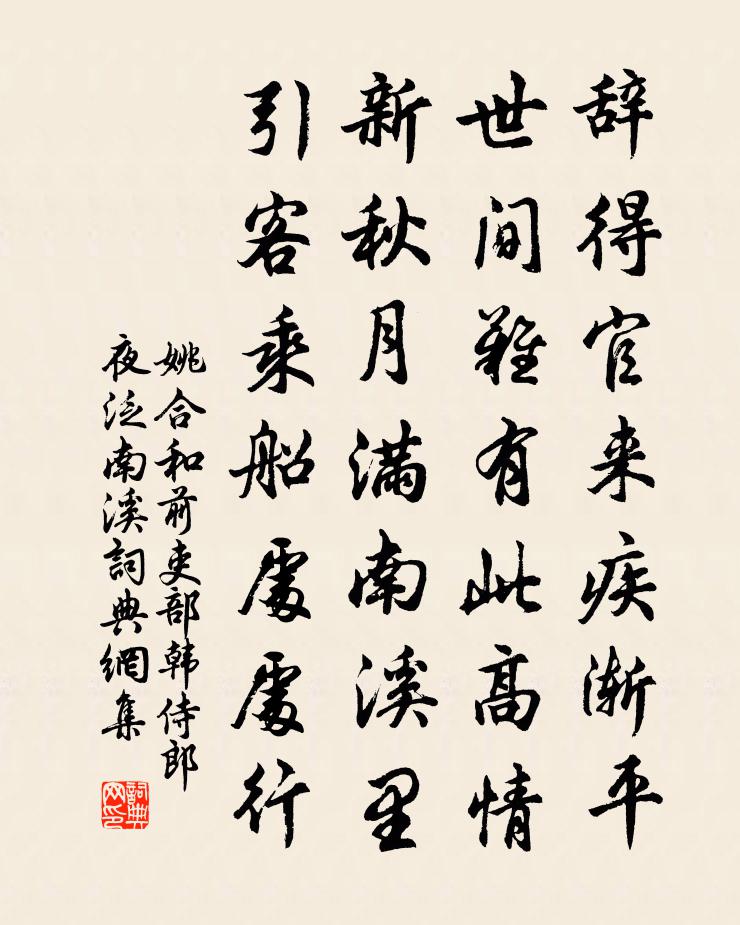 辞得官来疾渐平
世间难有此高情
新秋月满南溪里
引客乘船處處行
姚合和前吏部韩侍郎
夜泛南溪詞典網集
詞典
网印